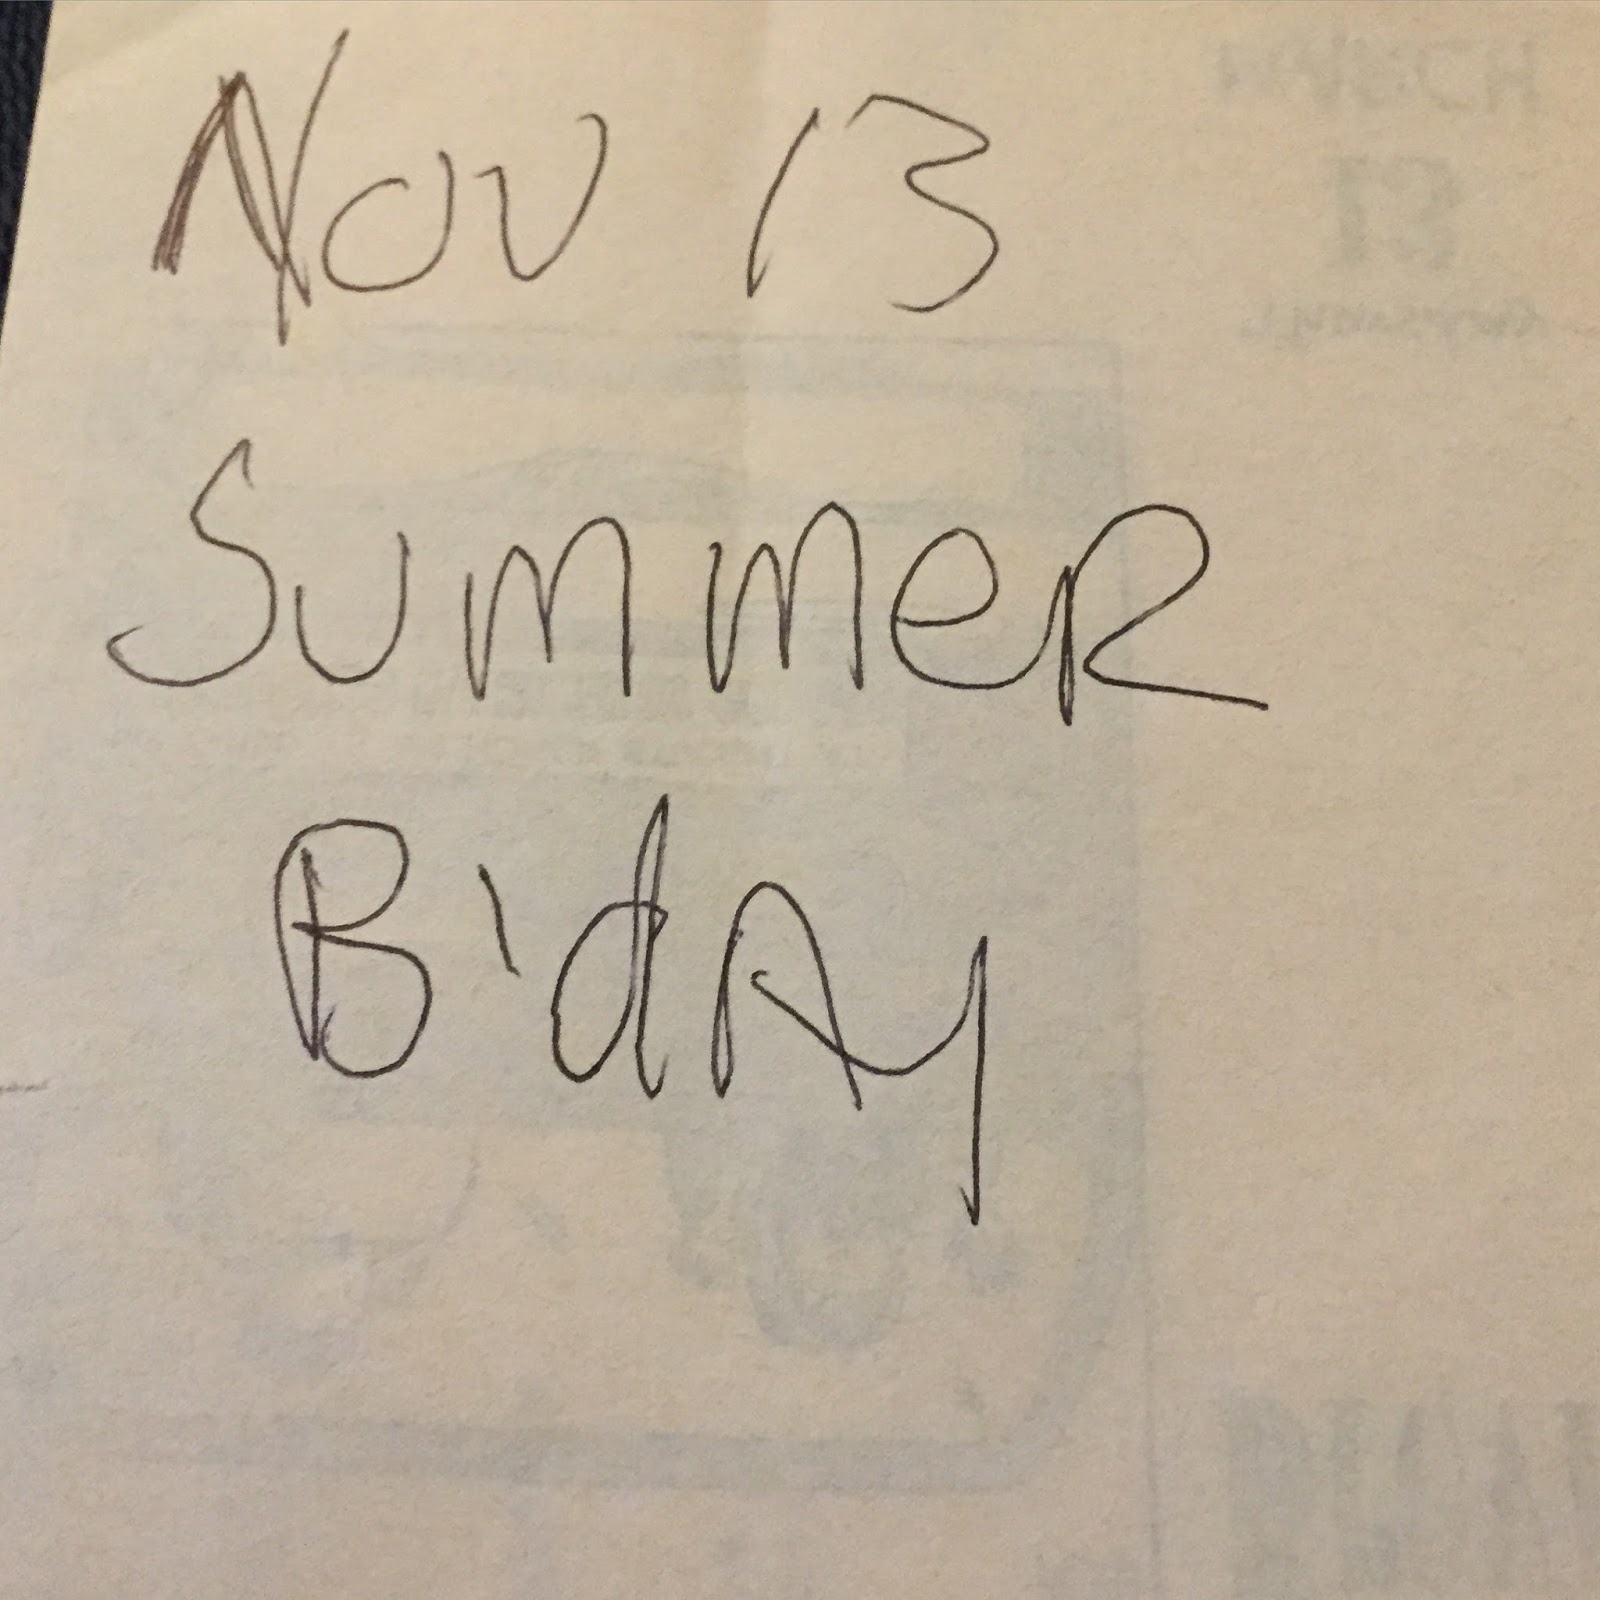 Nov 13
SummeR
B'dAy